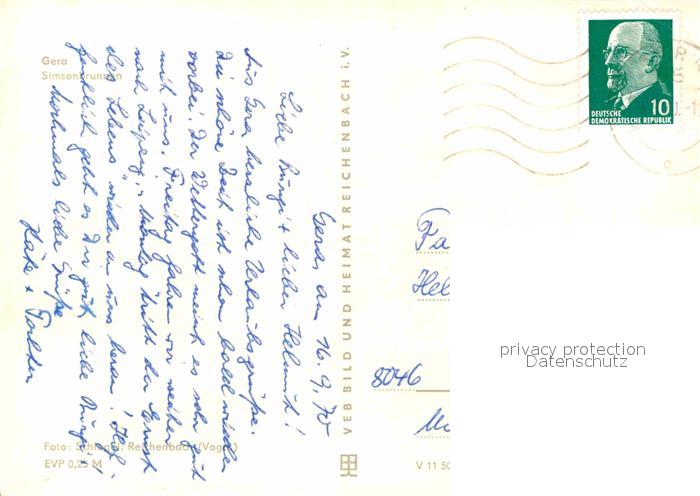 Gera
Simsonbrunnen
Gera, am 16.9.70
Liebe Burgi + lieber Helmut!
Aus Gera herzliche Urlaubsgrüße.
Die schöne Zeit ist schon bald wieder
vorbei. Der Wettergott meint es sehr gut
mit uns. Freitag fahren wir weiter
nach Leipzig u. Montag tritt der Ernst
des Lebens wieder an uns heran. Hof-
fentlich geht es Dir gut, liebe Burgi!
Nochmals liebe Grüße
Käte +
Foto: Reichenbach (Vogtl.)
EVP 0,25 M
VEB BILD UND HEIMAT REICHENBACH i.V.
V 11 50
10
DEUTSCHE
DEMOKRATISCHE REPUBLIK
Fa
Hel
8046
privacy protection
Datenschutz